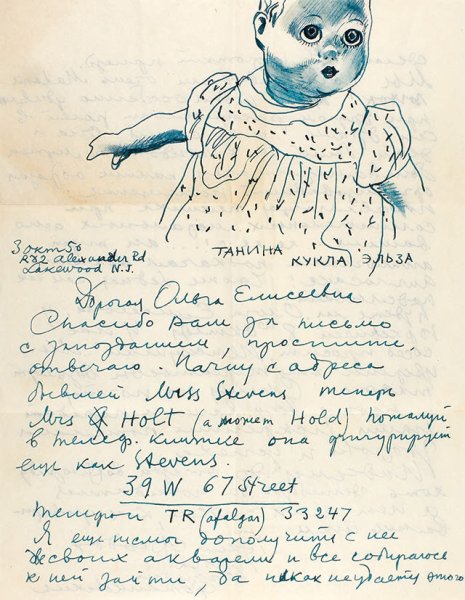 ТАНИНА КУКЛА ЭЛЬЗА
3 окт 50
R R 2 Alexander Rd
Lakewood N.J.
Дорогая Ольга Елисеевна
Спасибо Вам за письмо
с запозданием, простите,
отвечаю. Начну с адреса
бывшей Miss Stevens теперь
Mrs HOLT (а может Hold) пожалуй
в телеф. книжке она фигурирует
еще как Stevens.
39 W 67 Street
Телефон TR (afalgar) 33247
Я еще должен дополучить с нее
две своих акварели и все собираюсь
к ней зайти, да никак не удается этого